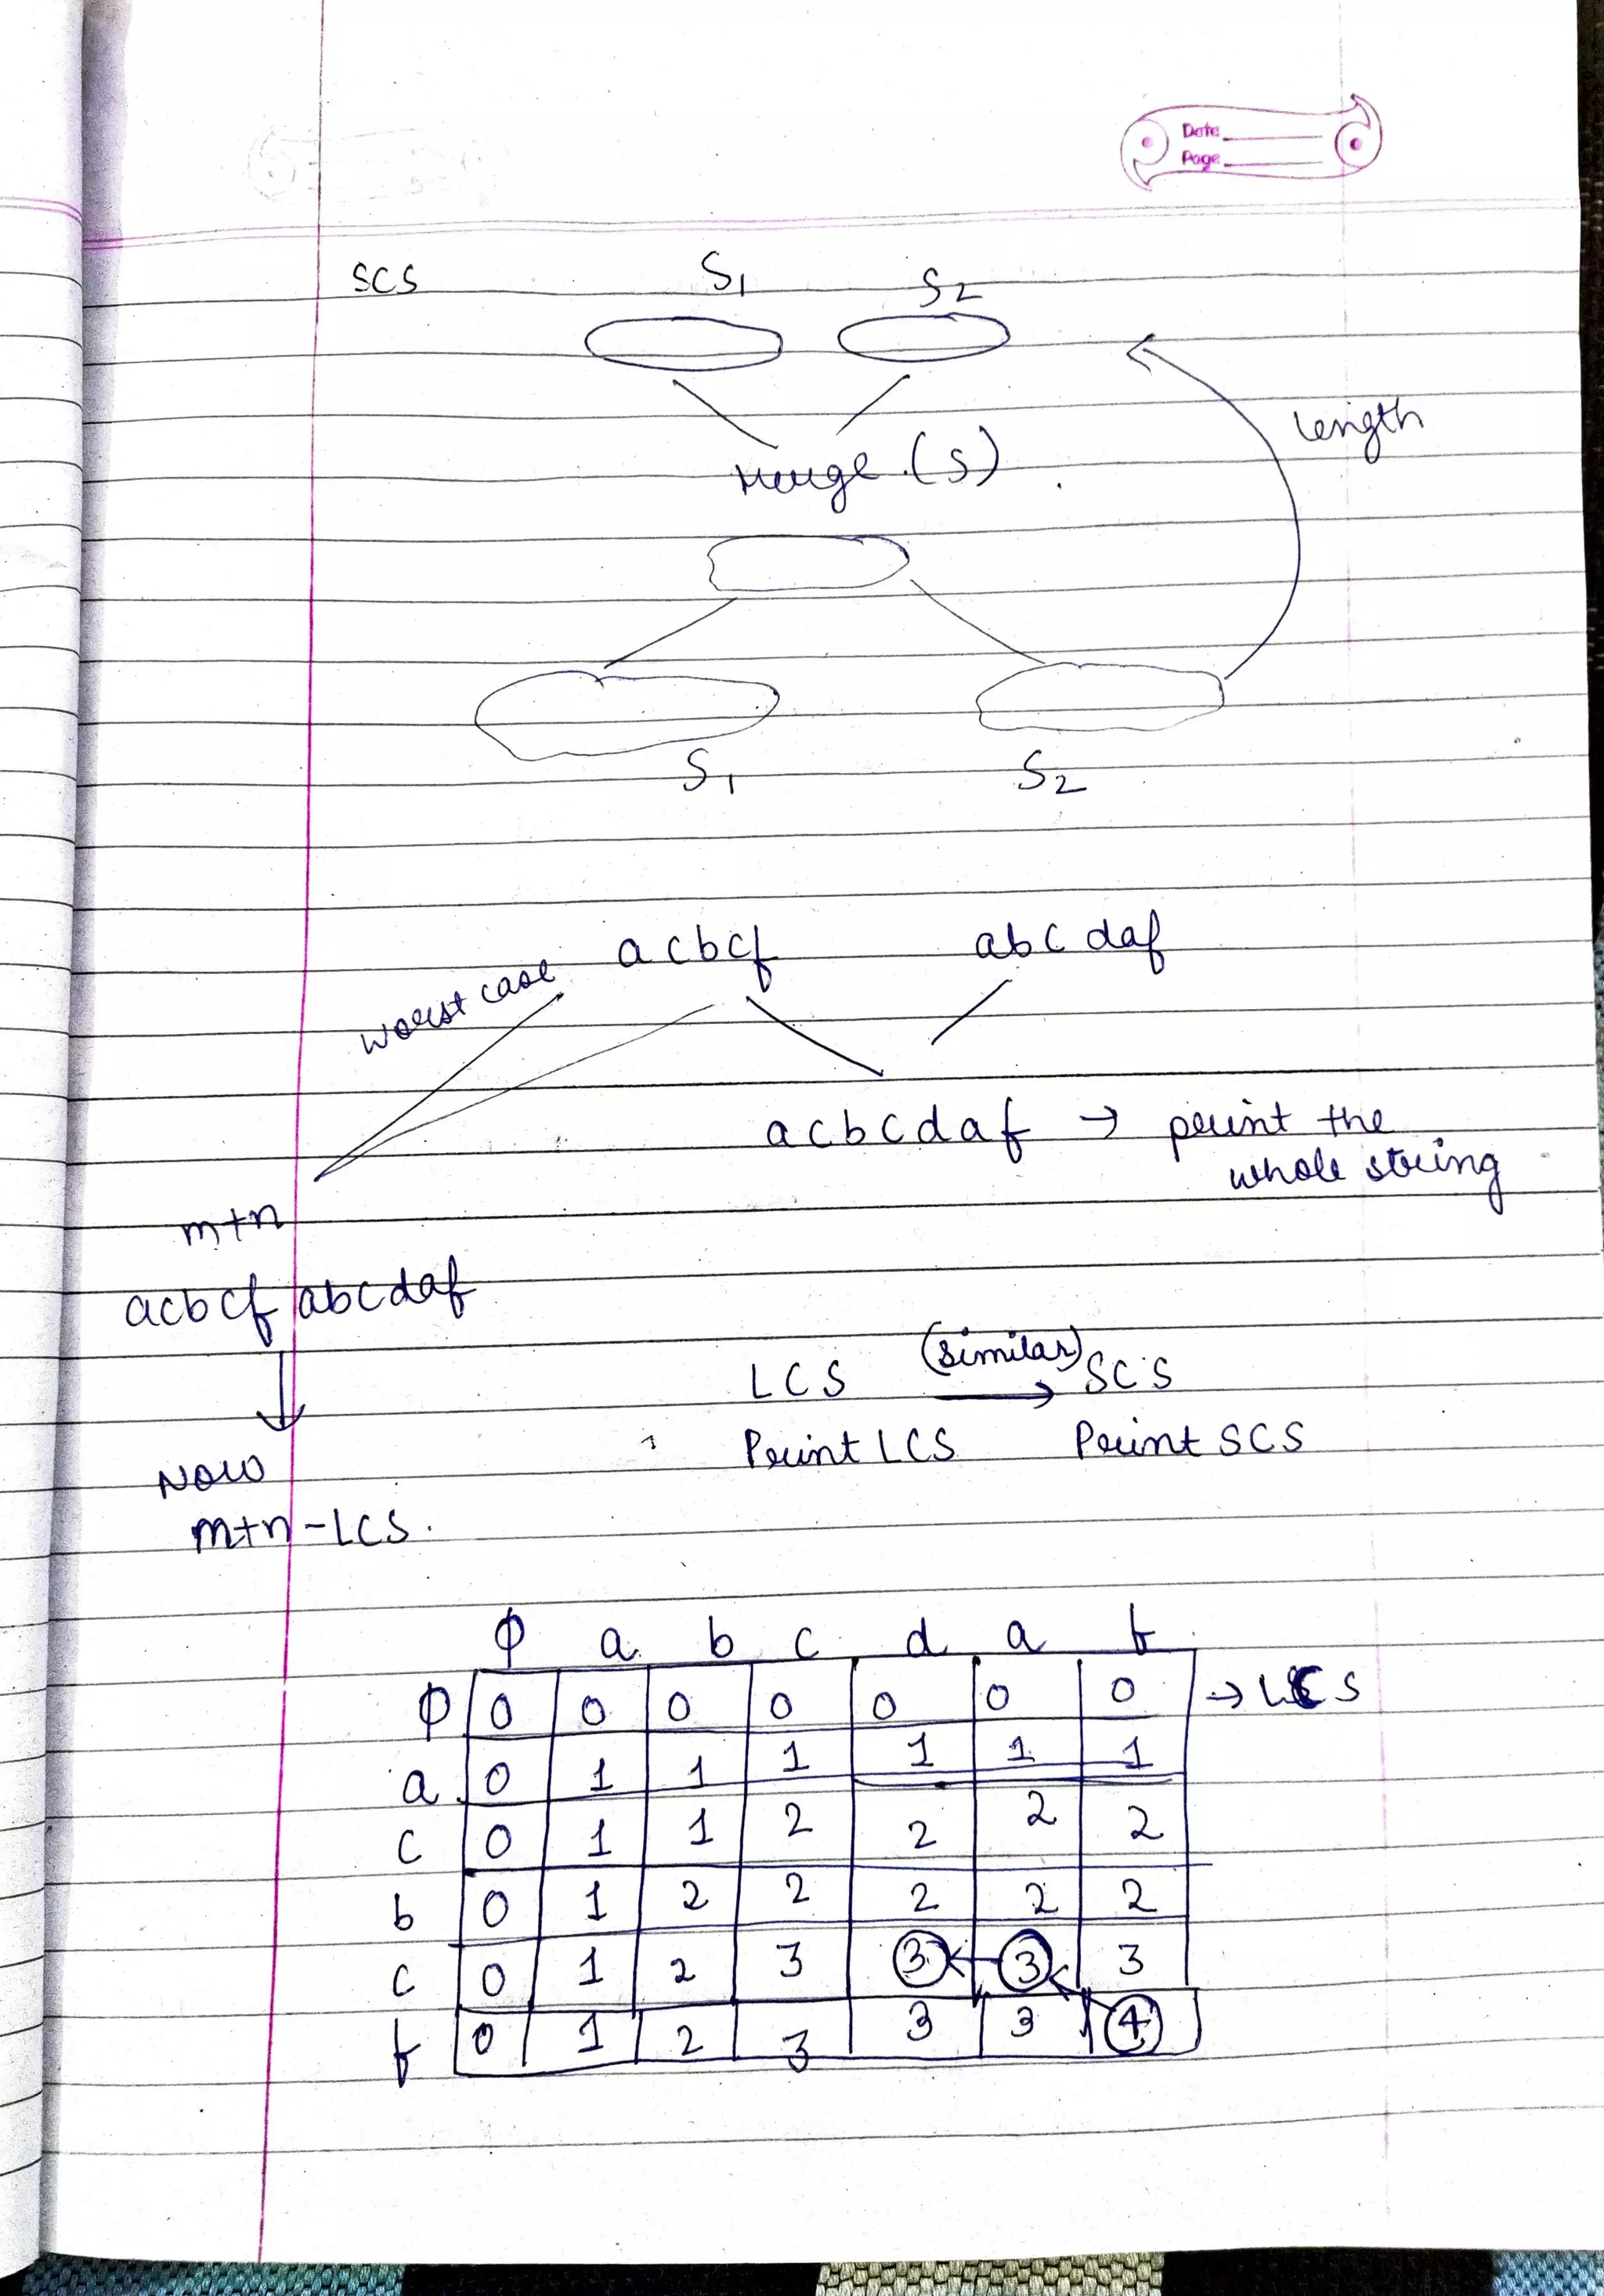 Date
Page
SCS S1 S2
length
Merge.(S)
S1 S2
acbcf abcdaf
worst case
acbcdaf → print the
whole string
m+n
acbcf abcdaf
(similar)
LCS → SCS
Print LCS Print SCS
NOW
m+n-LCS.
Φ a b c d a f
Φ 0 0 0 0 0 0 0 → LCS
a 0 1 1 1 1 1 1
c 0 1 1 2 2 2 2
b 0 1 2 2 2 2 2
c 0 1 2 3 3 3 3
f 0 1 2 3 3 3 4